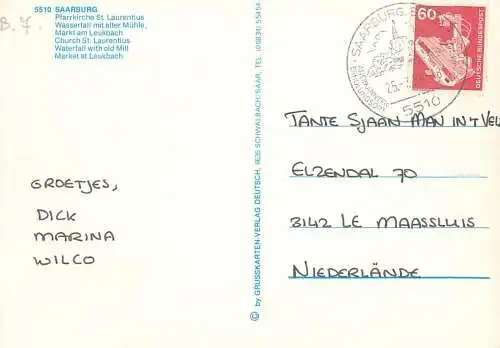 B.7.
5510 SAARBURG
Pfarrkirche St. Laurentius
Wasserfall mit alter Mühle,
Markt am Leukbach
Church St. Laurentius
Waterfall with old Mill
Market at Leukbach
GROETJES,
DICK
MARINA
WILCO
© by GRUSSKARTEN-VERLAG DEUTSCH, 6635 SCHWALBACH/SAAR, TEL. (06831) 55454
SAARBURG, B
25.
5510
60
DEUTSCHE BUNDESPOST
TANTE SJAAN MAN IN 'T VELD
ELZENDAL 70
3142 LE MAASSLUIS
NIEDERLÄNDE